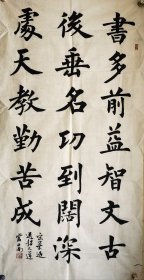 書多前益智文古
後垂名功到闊深
處天教勤苦成